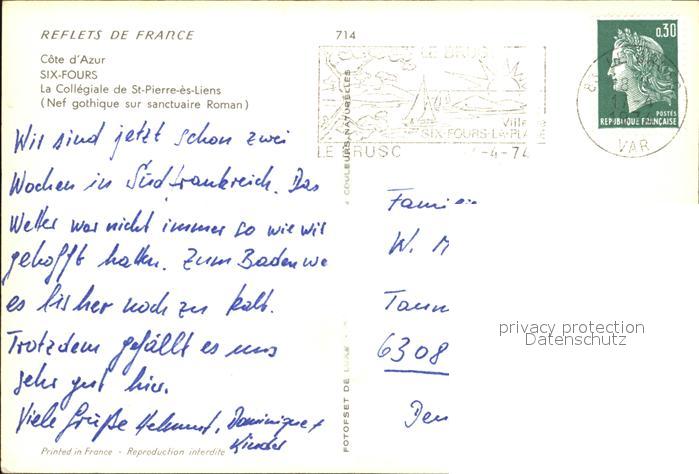 REFLETS DE FRANCE
714
Côte d'Azur
SIX-FOURS
La Collégiale de St-Pierre-ès-Liens
(Nef gothique sur sanctuaire Roman)
Wir sind jetzt schon zwei
Wochen in Südfrankreich. Das
Wetter war nicht immer so wie wir
gehofft hatten. Zum Baden wa
es bisher noch zu kalt.
Trotzdem gefällt es uns
sehr gut hier.
Viele Grüße Helmut, Dominique +
Kinder
Printed in France - Reproduction interdite
COULEURS NATURELLES
FOTOFSET DE LUXE
LE BRUSC
SIX-FOURS-LA-PLAGE
LE BRUSC
-4-74
0,30
POSTES
REPUBLIQUE FRANÇAISE
VAR
Fami
W. M
Taun
6308
Deu
privacy protection
Datenschutz